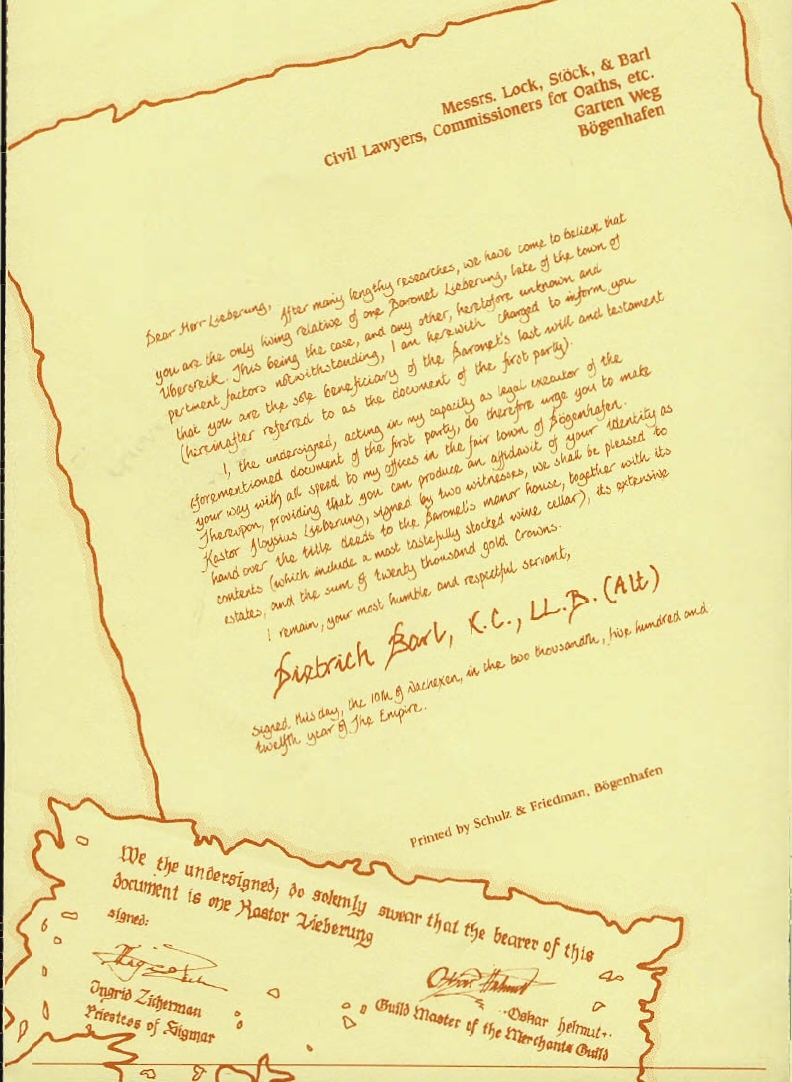 Messrs. Lock, Stöck, & Barl
Civil Lawyers, Commissioners for Oaths, etc.
Garten Weg
Bögenhafen
Dear Herr Lieberung, After many lengthy researches, we have come to believe that
you are the only living relative of one Baronet Lieberung, late of the town of
Ubersreik. This being the case, and any other, heretofore unknown and
pertinent factors notwithstanding, I am herewith charged to inform you
that you are the sole beneficiary of the Baronet's last will and testament
(hereinafter referred to as the document of the first party).
I, the undersigned, acting in my capacity as legal executor of the
aforementioned document of the first party, do therefore urge you to make
your way with all speed to my offices in the fair town of Bögenhafen.
Thereupon, providing that you can produce an affidavit of your identity as
Kastor Aloysius Lieberung, signed by two witnesses, we shall be pleased to
hand over the title deeds to the Baronet's manor house, together with its
contents (which include a most tastefully stocked wine cellar), its extensive
estates, and the sum of twenty thousand gold Crowns.
I remain, your most humble and respectful servant,
Dietrich Barl, K.C., LL.B. (Alt)
signed this day, the 10th of Nachexen, in the two thousandth, five hundred and
twelfth year of The Empire.
Printed by Schulz & Friedman, Bögenhafen
We the undersigned, do solemly swear that the bearer of this
document is one Kastor Lieberung
signed:
Ingrid Zicherman
Priestess of Sigmar
Oskar Helmut
Guild Master of the Merchants Guild